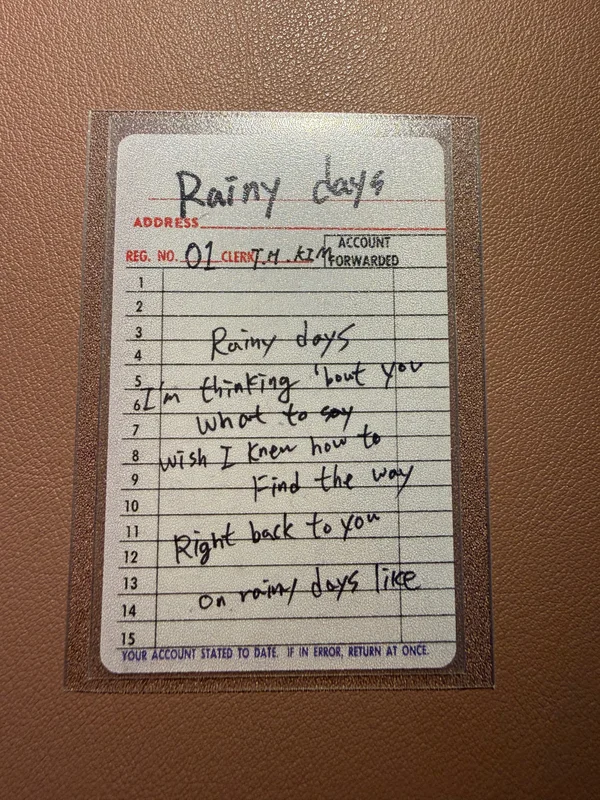 Rainy days
ADDRESS
REG. NO. 01 CLERK T.H. KIM ACCOUNT FORWARDED
1
2
3
Rainy days
4
5
I'm thinking 'bout you
6
what to say
7
wish I knew how to
8
9
Find the way
10
11
Right back to you
12
13
on rainy days like
14
15
YOUR ACCOUNT STATED TO DATE. IF IN ERROR, RETURN AT ONCE.